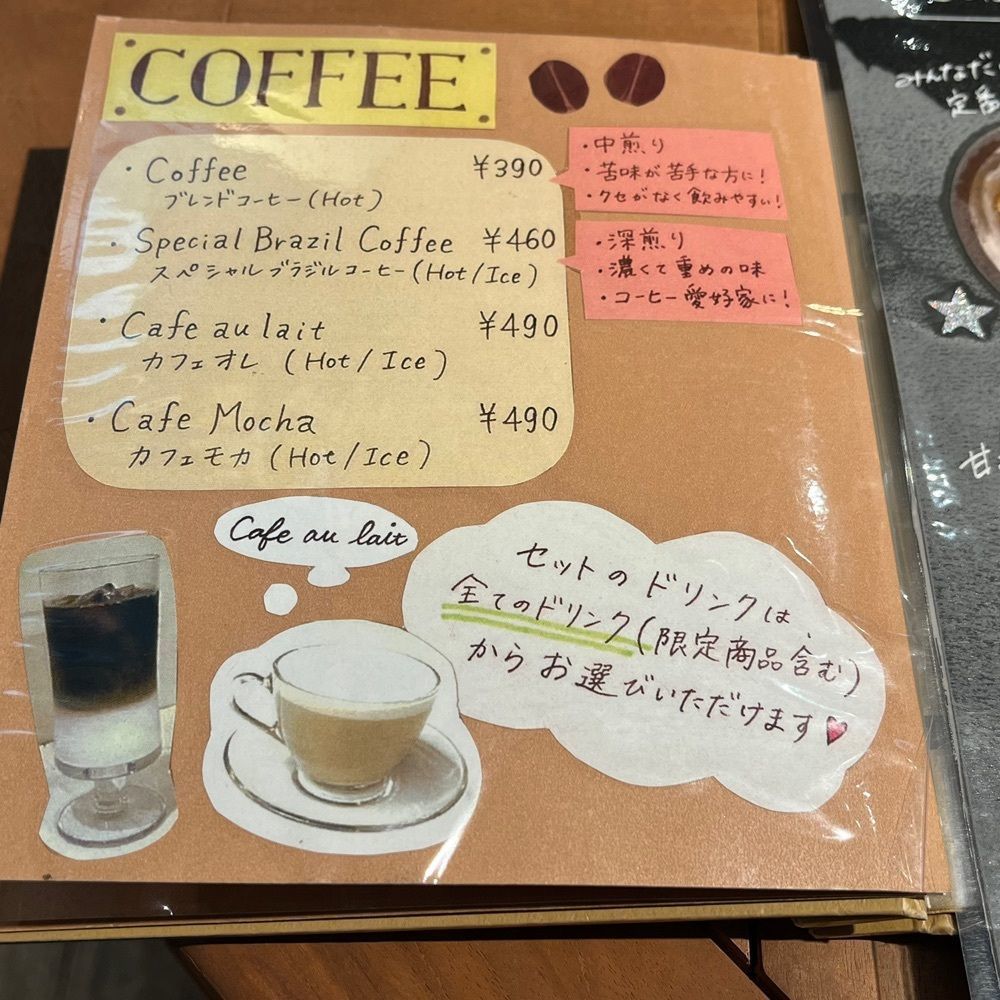 COFFEE
・Coffee ¥390
ブレンドコーヒー(Hot)
・中煎り
・苦味が苦手な方に!
・クセがなく飲みやすい!
・Special Brazil Coffee ¥460
スペシャルブラジルコーヒー(Hot/Ice)
・深煎り
・濃くて重めの味
・コーヒー愛好家に!
・Cafe au lait ¥490
カフェオレ (Hot/Ice)
・Cafe Mocha ¥490
カフェモカ (Hot/Ice)
Cafe au lait
セットのドリンクは、
全てのドリンク(限定商品含む)
からお選びいただけます♥
みんなだ
定番
甘